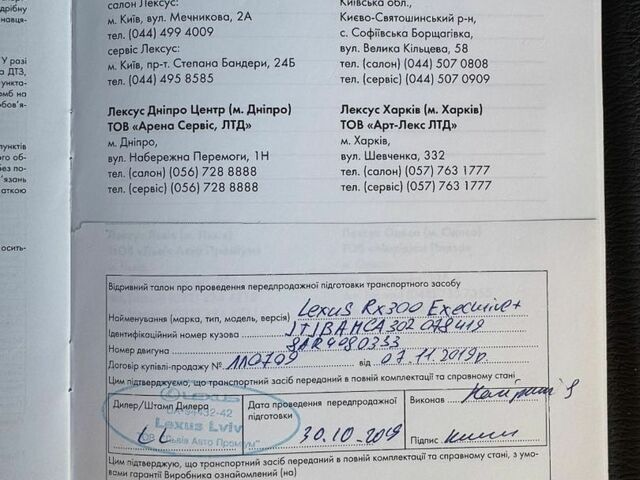 дрібну
навця-
У разі
а ДТЗ,
ункта-
омб на
обов'я-
пунктів
ого об-
без по-
'язань
аткою
осить-
салон Лексус:
м. Київ, вул. Мечникова, 2А
тел. (044) 499 4009
сервіс Лексус:
м. Київ, пр-т. Степана Бандери, 24Б
тел. (044) 495 8585
Лексус Дніпро Центр (м. Дніпро)
ТОВ «Арена Сервіс, ЛТД»
м. Дніпро,
вул. Набережна Перемоги, 1Н
тел. (салон) (056) 728 8888
тел. (сервіс) (056) 728 8888
Київська обл.,
Києво-Святошинський р-н,
с. Софіївська Борщагівка,
вул. Велика Кільцева, 58
тел. (салон) (044) 507 0808
тел. (сервіс) (044) 507 0909
Лексус Харків (м. Харків)
ТОВ «Арт-Лекс ЛТД»
м. Харків,
вул. Шевченка, 332
тел. (салон) (057) 763 1777
тел. (сервіс) (057) 763 1777
Відривний талон про проведення передпродажної підготовки транспортного засобу
Найменування (марка, тип, модель, версія) Lexus Rx300 Executive+
Ідентифікаційний номер кузова JTJBAMCA302078419
Номер двигуна 8AR4980333
Договір купівлі-продажу № 110709 від 07.11.2019р
Цим підтверджуємо, що транспортний засіб переданий в повній комплектації та справному стані
Дилер/Штамп Дилера
LEXUS
Lexus Lviv
LL
Дата проведення передпродажної
підготовки
30.10-2019
Виконав
Підпис
Цим підтверджую, що транспортний засіб переданий в повній комплектації та справному стані, з умо-
вами гарантії Виробника ознайомлений (на)